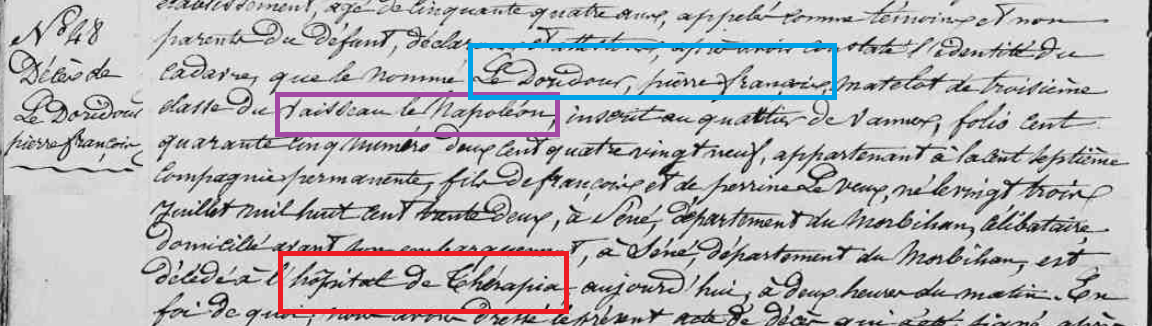 établissement, agé de Cinquante quatre ans, appelés comme témoins et non
N° 48
parents du défunt, déclar et attestons, après avoir constaté l'identité du
Décès de
Cadavre, que le nommé Le Doridour, pierre françois, matelot de troisième
Le Doridour
classe du Vaisseau le Napoléon, inscrit au quartier de Vannes, folio cent
pierre françois
quarante cinq numéro deux cent quatre vingt neuf, appartenant à la cent septième
Compagnie permanente, fils de françois et de perrine Le Veux, né le vingt trois
Juillet mil huit cent trente deux, à Séné, département du Morbihan, célibataire
domicilié avant son embarquement, à Séné, département du Morbihan, est
décédé à l'hôpital de Thérapia aujourd'hui, à deux heures du matin. En
foi de quoi, nous avons dressé le présent acte de décès qui a été signé après